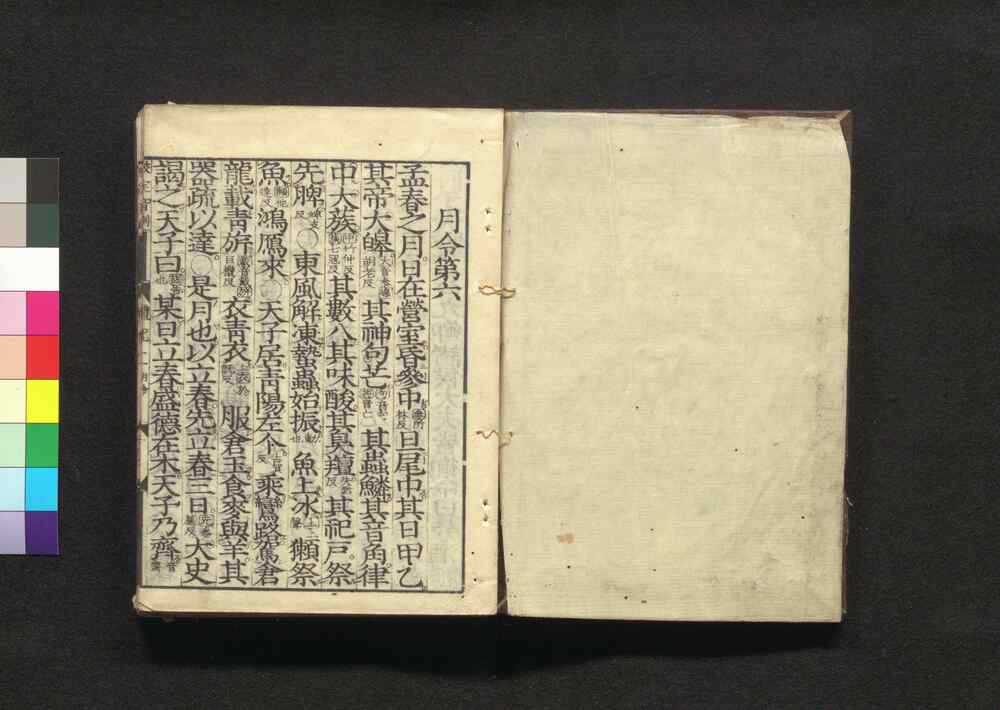 月令第六
孟春之月日在營室昏參中旦尾中其日甲乙
其帝大皞其神句芒其蟲鱗其音角律
中大蔟其數八其味酸其臭羶其祀戶祭
先脾東風解凍蟄蟲始振魚上冰獺祭
魚鴻鴈來天子居靑陽左个乘鸞路駕倉
龍載靑旂衣靑衣服倉玉食麥與羊其
器疏以達是月也以立春先立春三日大史
謁之天子曰某日立春盛德在木天子乃齊